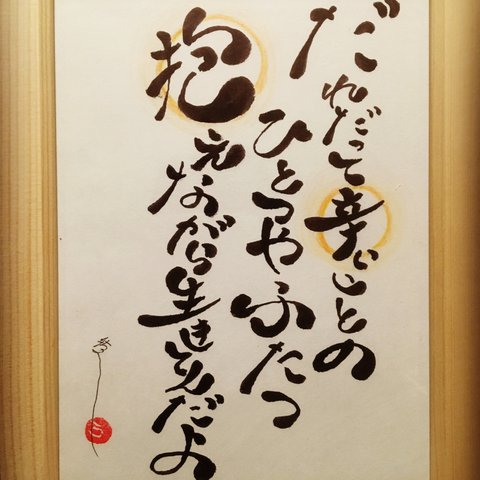 だれだって辛いことの
ひとつやふたつ
抱えながら生きてんだよ